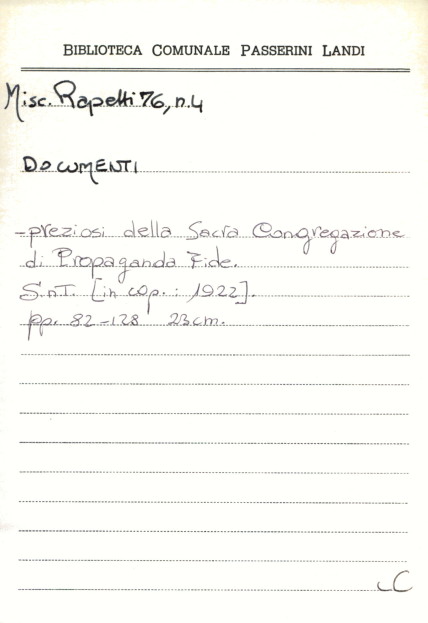 BIBLIOTECA COMUNALE PASSERINI LANDI
Misc. Rapetti 76, n.4
DOCUMENTI
-preziosi della Sacra Congregazione
di Propaganda Fide.
S.n.T. [in cop.: 1922].
pp. 82-128 23cm.